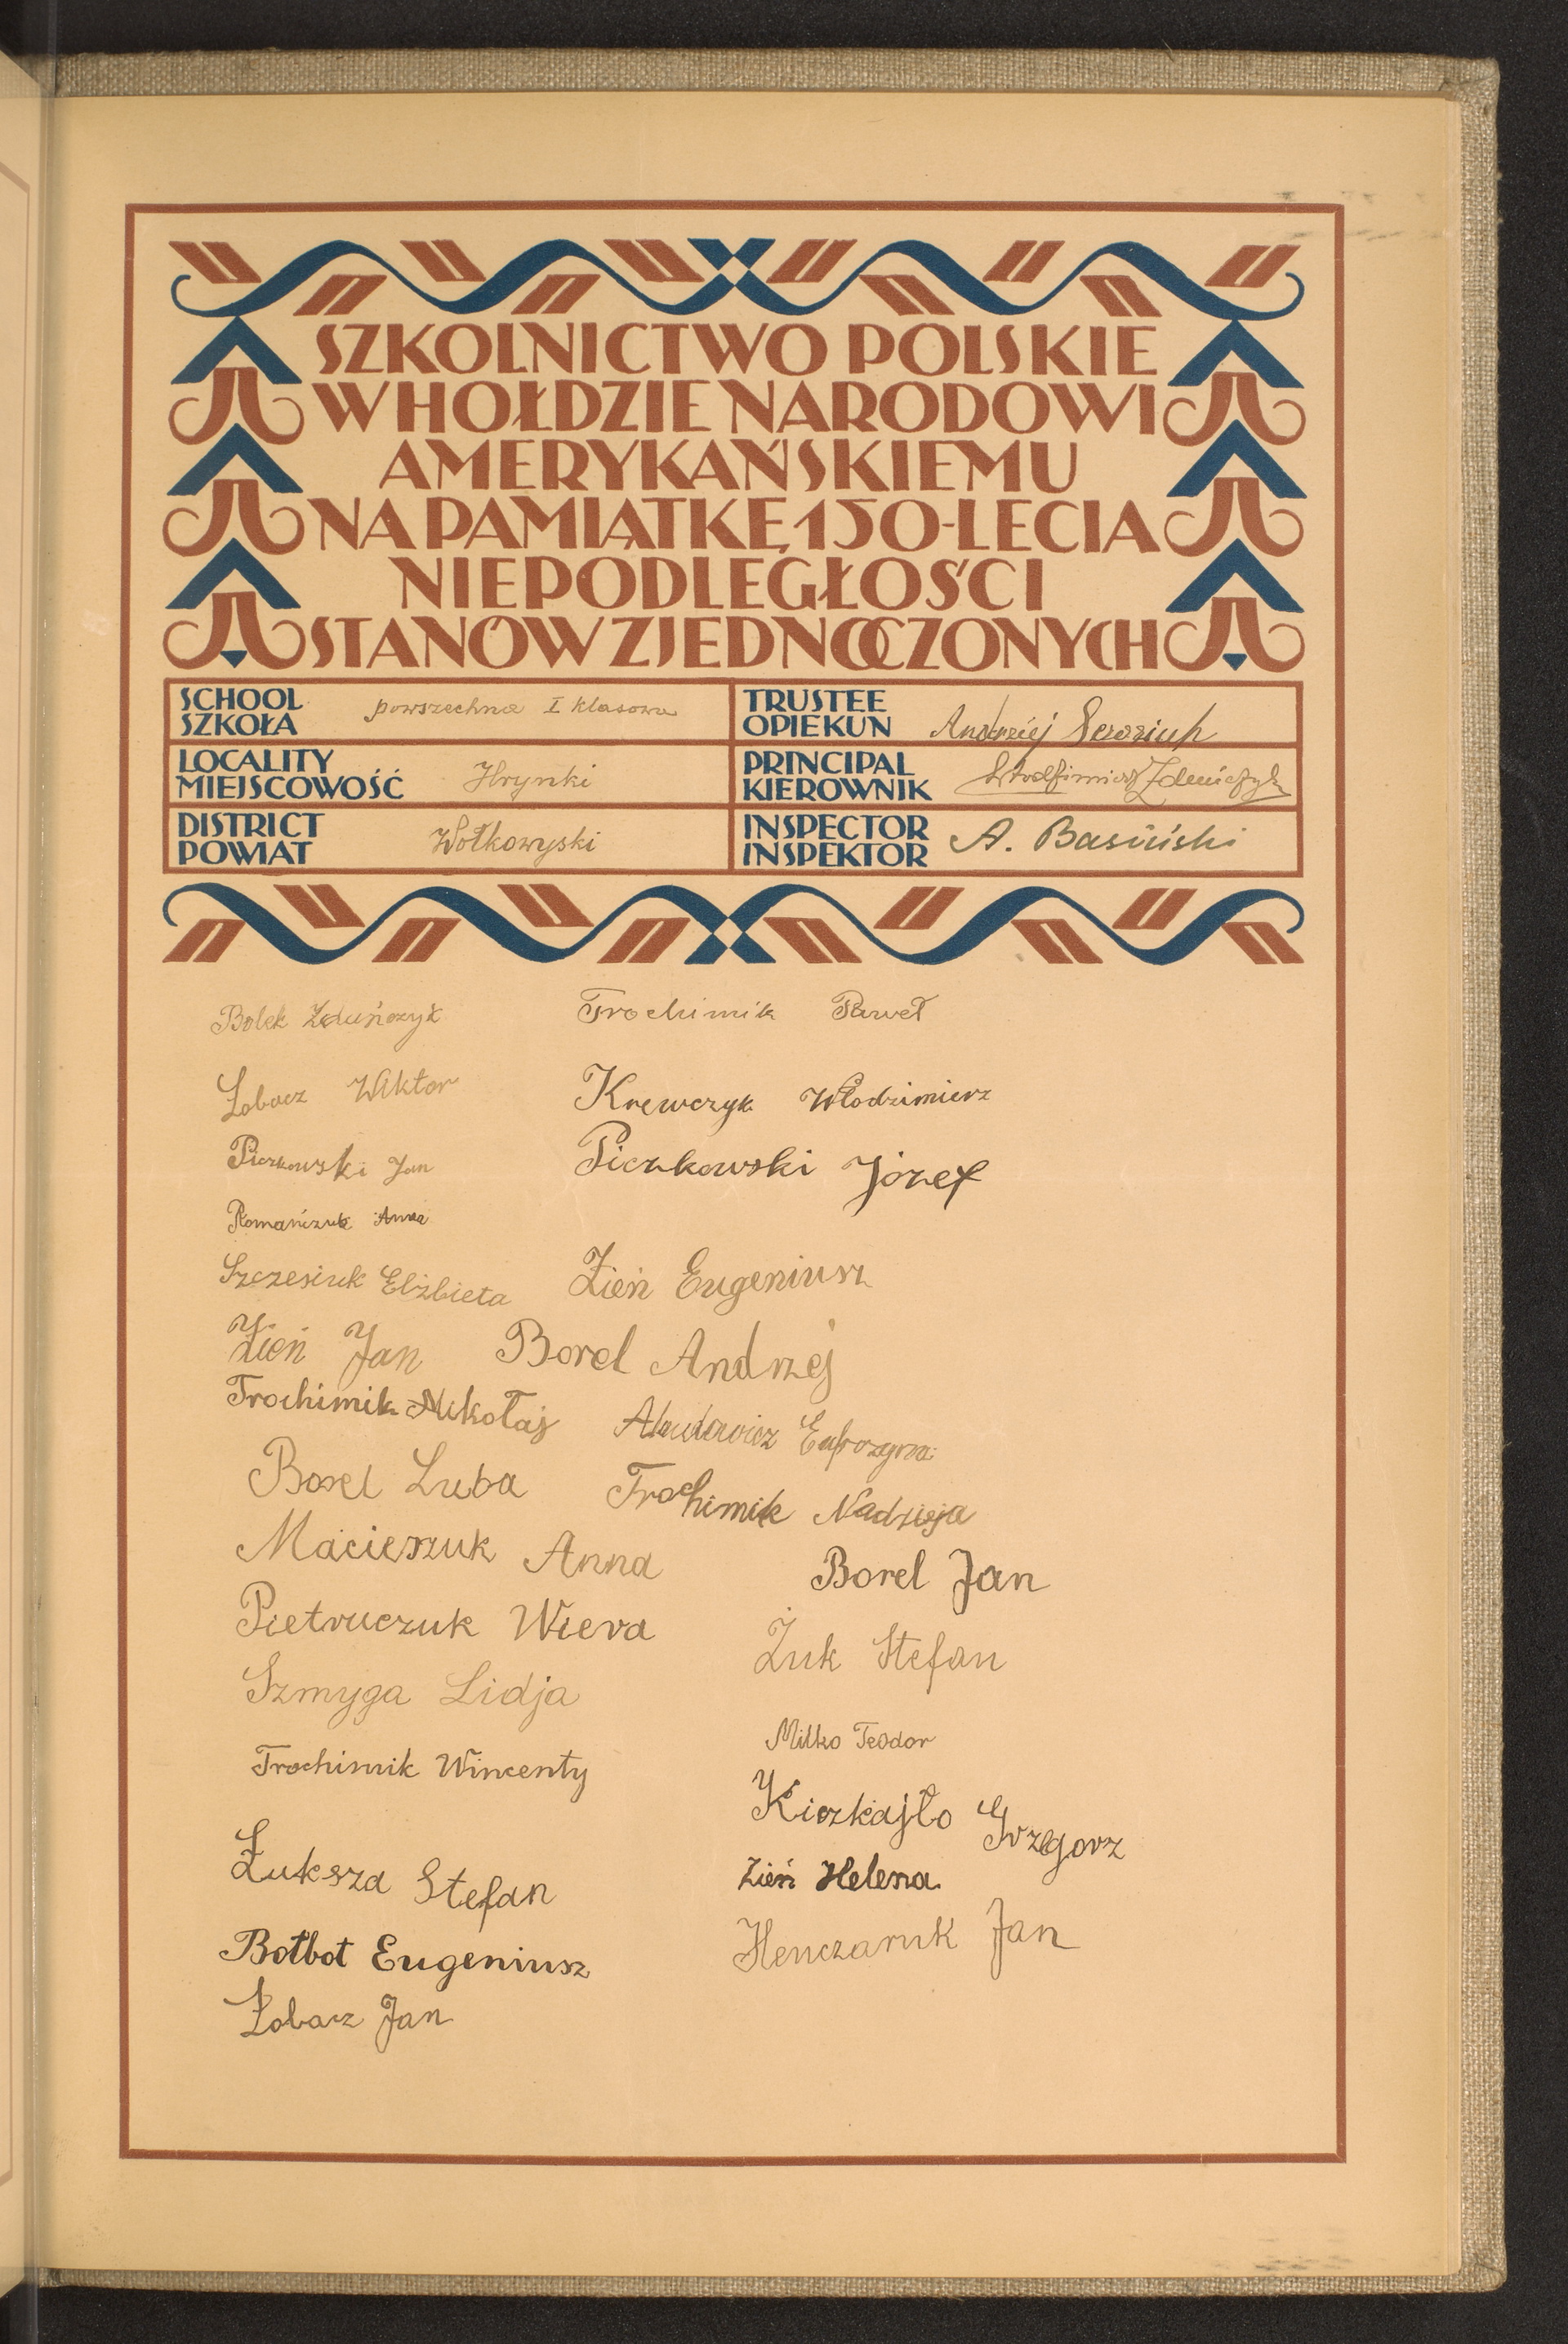 SZKOLNICTWO POLSKIE
W HOŁDZIE NARODOWI
AMERYKAŃSKIEMU
NA PAMIĄTKĘ 150-LECIA
NIEPODLEGŁOŚCI
STANÓW ZJEDNOCZONYCH
SCHOOL
SZKOŁA
powszechna I klasowa
TRUSTEE
OPIEKUN
Andrziej
LOCALITY
MIEJSCOWOŚĆ
Hrynki
PRINCIPAL
KIEROWNIK
DISTRICT
POWIAT
Wołkowyski
INSPECTOR
INSPEKTOR
A. Basiński
Bolek Zduńczyk
Trochimik Paweł
Łobacz Wiktor
Krewczyk Włodzimierz
Piczkowski Jan
Piczkowski Józef
Romańczuk Anna
Szczesiuk Elżbieta
Zień Eugeniusz
Zień Jan
Borel Andrzej
Trochimik Mikołaj
Borel Luba
Trochimik Nadzieja
Macieszuk Anna
Borel Jan
Pietruczuk Wiera
Żuk Stefan
Szmyga Lidja
Milko Teodor
Trochimik Wincenty
Kiczkajło Grzegorz
Łuksza Stefan
Zień Helena
Bołbot Eugeniusz
Henczaruk Jan
Łobacz Jan